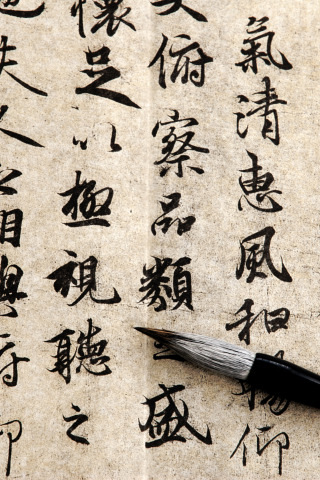 氣清惠風和暢仰
大俯察品類之盛
懷足以極視聽之
也夫人之相與俯仰